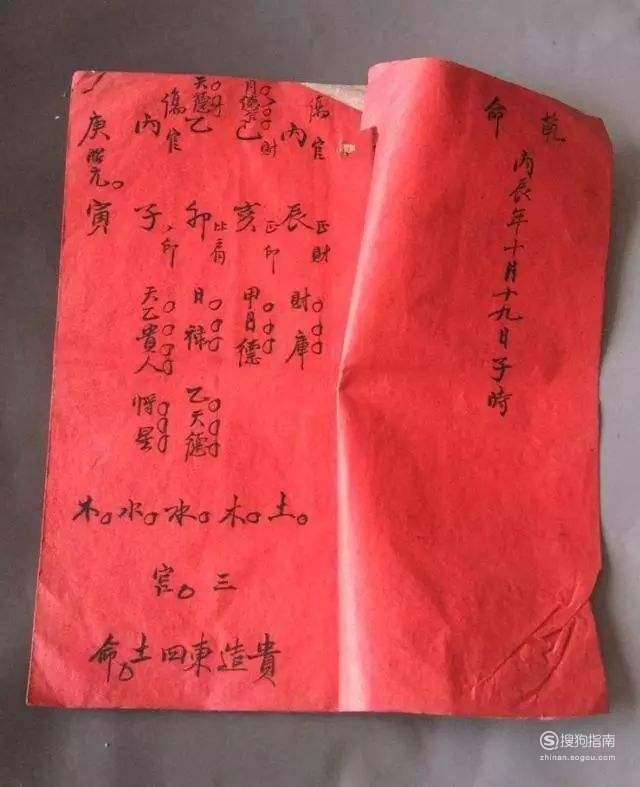 乾命
丙辰年十月十九日子時
傷官 丙 辰 正財 財庫
月德合 己 財 亥 正印 甲月德
天德 乙 卯 比肩 日祿 乙天德
傷官 丙 子 印 天乙貴人 將星
庚寅 元
土木水水木
三宮
貴造東四土命
搜狗指南
zhinan.sogou.com